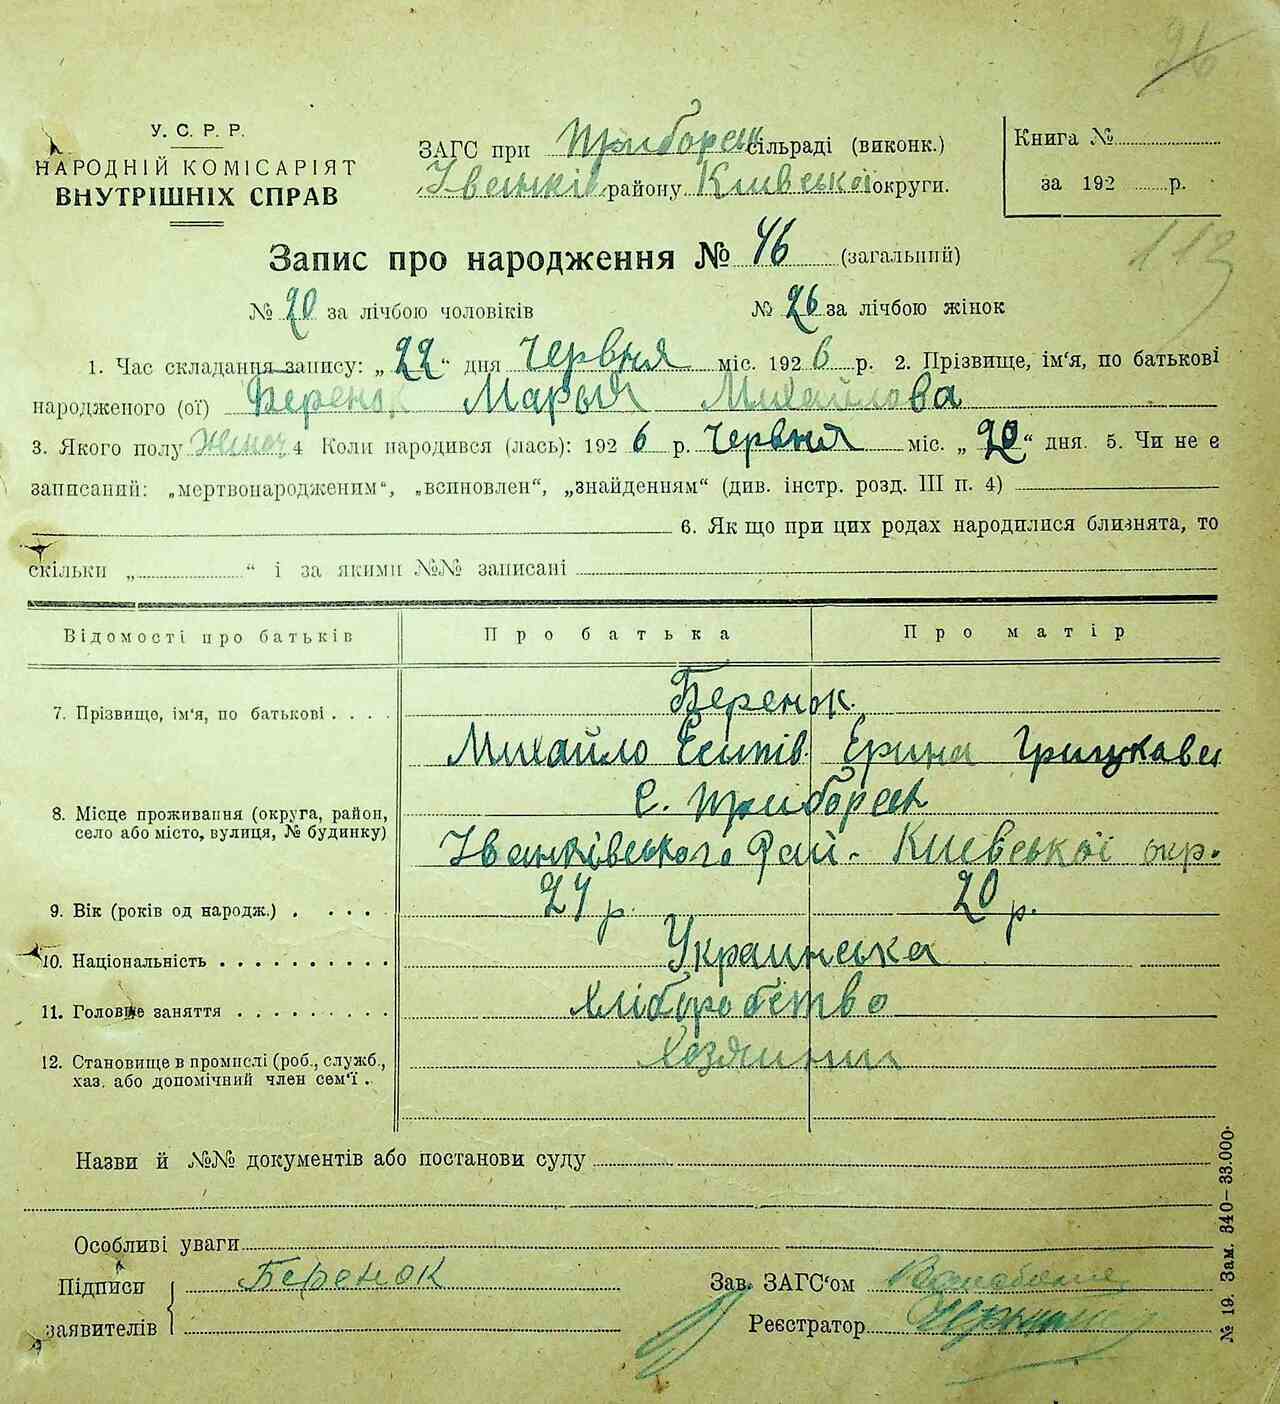 26
У. С. Р. Р.
НАРОДНІЙ КОМІСАРІЯТ
ВНУТРІШНІХ СПРАВ
ЗАГС при Приборськ сільраді (виконк.)
Іванків району Київської округи.
Книга №
за 192 р.
113
Запис про народження № 46 (загальний)
№ 20 за лічбою чоловіків № 26 за лічбою жінок
1. Час складання запису: „22“ дня червня міс. 1926 р. 2. Прізвище, ім'я, по батькові
народженого (ої) Беренок Марыя Михайлова
3. Якого полу Жіноч 4 Коли народився (лась): 1926 р. червня міс. „20“ дня. 5. Чи не є
записаний: „мертвонародженим“, „всиновлен“, „знайденням“ (див. інстр. розд. III п. 4)
6. Як що при цих родах народилися близнята, то
скільки „ “ і за якими №№ записані
Відомості про батьків Про батька Про матір
7. Прізвище, ім'я, по батькові . . . . Беренок.
Михайло Есипів. Ерина Грицкавна
8. Місце проживання (округа, район,
село або місто, вулиця, № будинку)
с. Приборськ
Іванківського Рай. Киевської окр.
9. Вік (років од народж.) . . . . 24 р. 20 р.
10. Національність . . . . . . . . . . Украинська
11. Головне заняття . . . . . . . . . Хліборобство
12. Становище в промислі (роб., служб.,
хаз. або допомічний член сем'ї .
Хозяини
Назви й №№ документів або постанови суду
Особливі уваги
Підписи
заявителів
Беренок
Зав. ЗАГС'ом
Реєстратор
№ 19. Зам. 340—33.000.